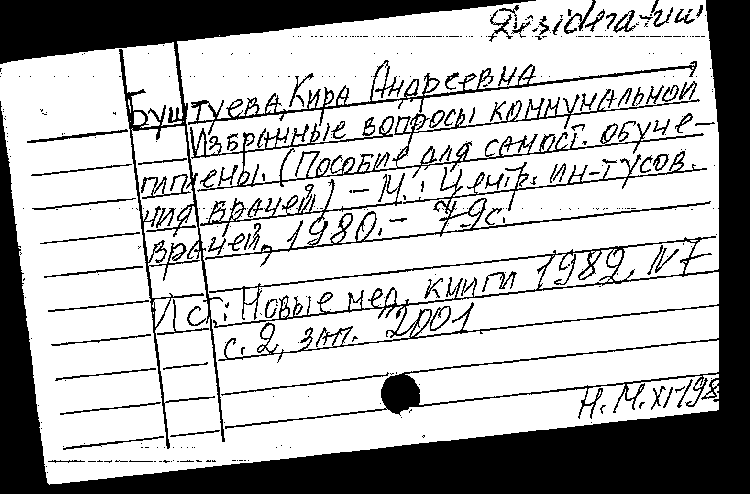 Desideratum
Буштуева, Кира Андреевна
Избранные вопросы коммунальной
гигиены. (Пособие для самост. обуче-
ния врачей). – М.: Центр. ин-т усов.
врачей, 1980. – 79 с.
Ист.: Новые мед. книги 1982, N 7
с. 2, зап. 2001
Н. М. XI-198